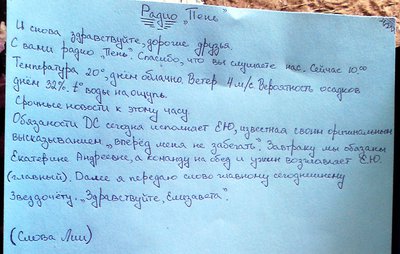 Радио „Пень"
И снова здравствуйте, дорогие друзья.
С вами радио „Пень". Спасибо, что вы слушаете нас. Сейчас 10:00
Температура 20°, днём облачно. Ветер 4 м/с Вероятность осадков
днём 32%. t° воды на ощупь.
Срочные новости к этому часу
Обязаности DC сегодня исполняет ЕЮ, известная своим оригинальным
высказыванием „вперёд меня не забегать". Завтраку мы обязаны
Екатерине Андреевне, а команду на обед и ужин возглавляет Е.Ю.
(главный). Далее я передаю слово главному сегодняшнему
Звездочёту. „Здравствуйте, Елизавета".
(Слова Лии)